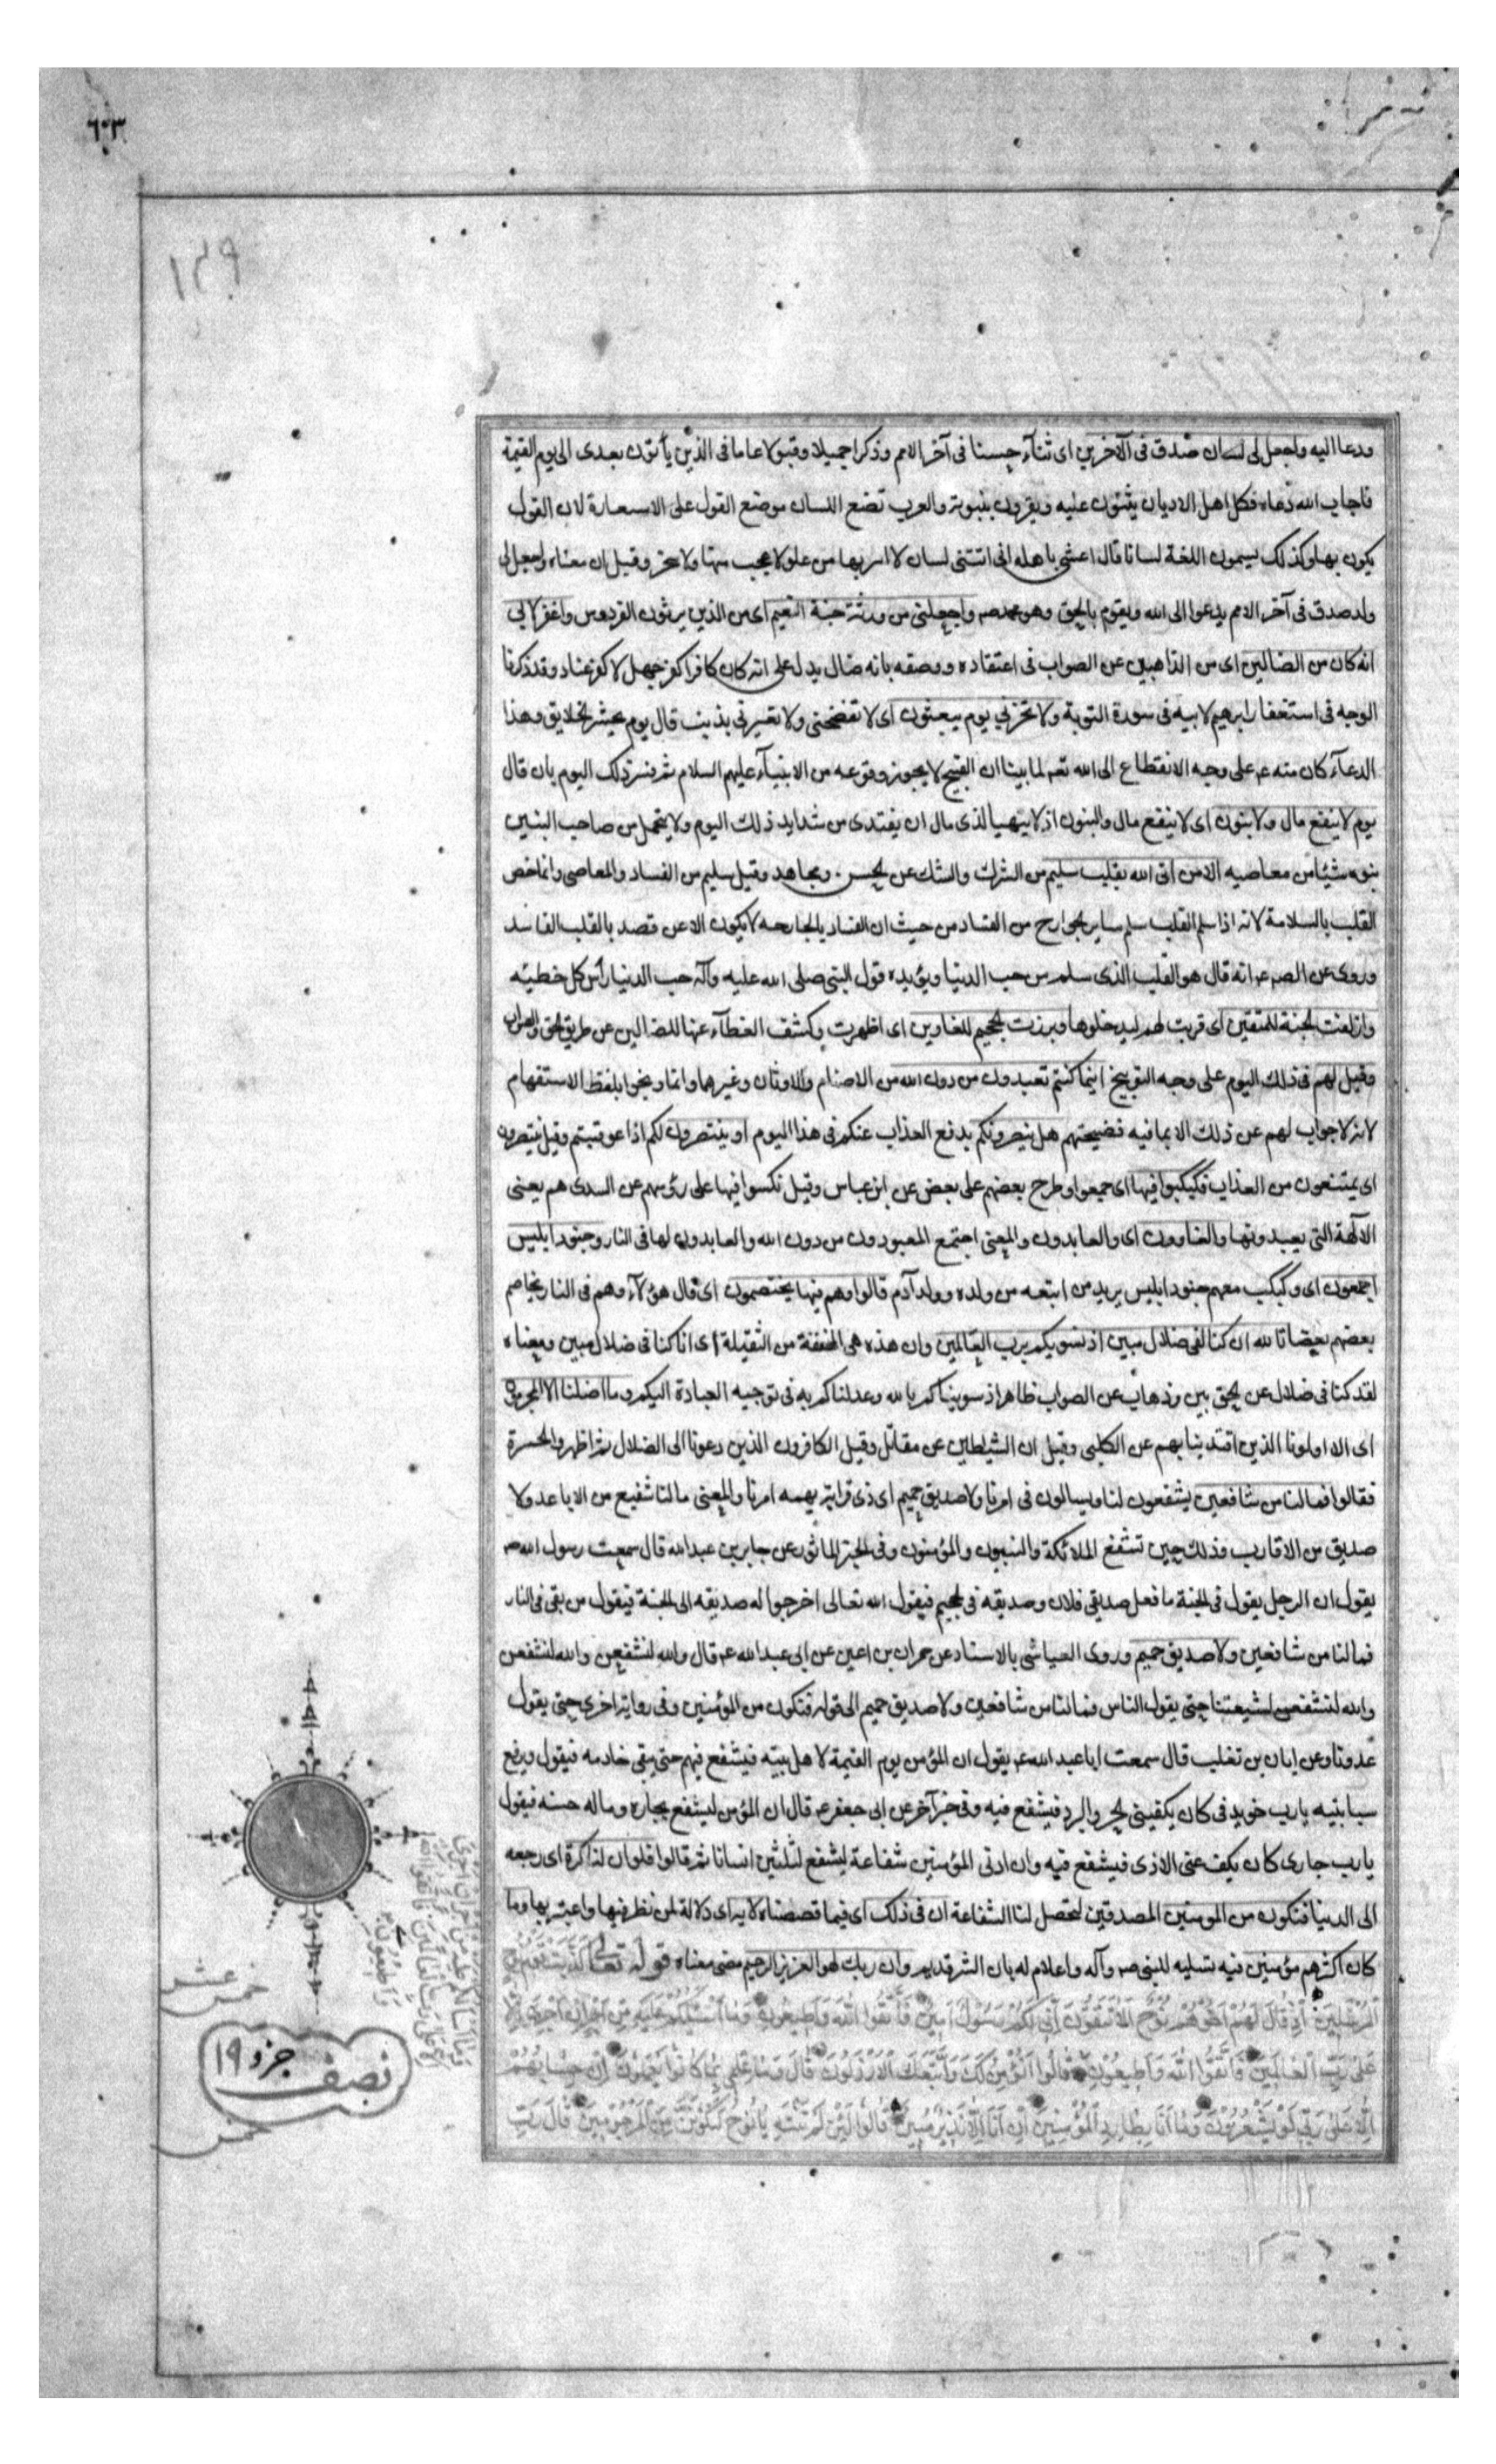 ٦٠٣
١٣٩
ودعا اليه واجعل لى لسان صدق فى الآخرين اى ثنآء حسنا فى آخر الامم وذكرا جميلا وقبولا عاما فى الذين يأتون بعدى الى يوم القيمة
فاجاب الله دعاه فكل اهل الاديان يثنون عليه ويقرون بنبوته والعرب تضع اللسان موضع القول على الاستعارة لان القول
يكون بها وكذلك يسمون اللغة لسانا قال اعشى باهله انى اتتنى لسان لا اسر بها من علو لا عجب منها ولا سخر وقيل ان معناه واجعل لى
ولد صدق فى آخر الامم يدعوا الى الله ويقوم بالحق وهو محمد صه واجعلنى من ورثة جنة النعيم اى من الذين يرثون الفردوس واغفر لابي
انه كان من الضالين اى من الذاهبين عن الصواب فى اعتقاده ووصفه بانه ضال يدل على انه كان كافرا كفر جهل لا كفر عناد وقد ذكرنا
الوجه فى استغفار ابرهيم لابيه فى سورة التوبة ولا تخزني يوم يبعثون اى لا تفضحنى ولا تعيرنى بذنب قال يوم يحشر الخلايق وهذا
الدعآء كان منه عه على وجه الانقطاع الى الله تعه لما بينا ان القبيح لا يجوز وقوعه من الانبيآء عليهم السلام ثم فسر ذلك اليوم بان قال
يوم لا ينفع مال ولا بنون اى لا ينفع مال والبنون اذ لا يتهيا لذى مال ان يفتدى من شدايد ذلك اليوم ولا يتحمل من صاحب البنين
بنوه شيئا من معاصيه الا من اتى الله بقلب سليم من الشرك والشك عن الحسن ومجاهد وقيل سليم من الفساد والمعاصى وانما خص
القلب بالسلامة لانه اذا سلم القلب سلم ساير الجوارح من الفساد من حيث ان الفساد بالجارحه لا يكون الا عن قصد بالقلب الفاسد
وروى عن الصه عه انه قال هو القلب الذى سلم من حب الدنيا ويؤيده قول النبى صلى الله عليه وآله حب الدنيا رأس كل خطيئه
وازلفت الجنة للمتقين اى قربت لهم ليدخلوها وبرزت الجحيم للغاوين اى اظهرت وكشف الغطآء عنها للضالين عن طريق الحق والصواب
وقيل لهم فى ذلك اليوم على وجه التوبيخ اينما كنتم تعبدون من دون الله من الاصنام والاوثان وغيرهما وانما وبخوا بلفظ الاستفهام
لانه لا جواب لهم عن ذلك الا بما فيه فضيحتهم هل ينصرونكم بدفع العذاب عنكم فى هذا اليوم او ينتصرون لكم اذا عوقبتم وقيل ينتصرون
اى يمتنعون من العذاب فكبكبوا فيها اى جمعوا وطرح بعضهم على بعض عن ابن عباس وقيل نكسوا فيها على رؤسهم عن السدى هم يعنى
الآلهة التى يعبدونها والغاوون اى والعابدون والمعنى اجتمع المعبودون من دون الله والعابدون لها فى النار وجنود ابليس
اجمعون اى وكبكب معهم جنود ابليس يريد من اتبعه من ولده وولد آدم قالوا وهم فيها يختصمون اى قال هؤلآء وهم فى النار يخاصم
بعضهم بعضا تالله ان كنا لفى ضلال مبين اذ نسويكم برب العالمين وان هذه هى المخففة من الثقيلة اى انا كنا فى ضلال مبين ومعناه
لقد كنا فى ضلال عن الحق بين وذهاب عن الصواب ظاهر اذ سويناكم بالله وعدلناكم به فى توجيه العبادة اليكم وما اضلنا الا المجرمون
اى الا اولونا الذين اقتدينا بهم عن الكلبى وقيل ان الشيطلين عن مقاتل وقيل الكافرون الذين دعونا الى الضلال ثم اظهروا الحسرة
فقالوا فما لنا من شافعين يشفعون لنا ويسالون فى امرنا ولا صديق حميم اى ذى قرابة يهمه امرنا والمعنى ما لنا شفيع من الاباعد ولا
صديق من الاقارب فذلك حين تشفع الملائكة والنبيون والمؤمنون وفى الخبر الماثور عن جابر بن عبدالله قال سمعت رسول الله صه
يقول ان الرجل يقول فى الجنة ما فعل صديقى فلان وصديقه فى الجحيم فيقول الله تعالى اخرجوا له صديقه الى الجنة فيقول من بقى فى النار
فما لنا من شافعين ولا صديق حميم وروى العياشى بالاسناد عن حمران بن اعين عن ابى عبدالله عه قال والله لنشفعن والله لنشفعن
والله لنشفعن لشيعتنا حتى يقول الناس فما لنا من شافعين ولا صديق حميم الى قوله فنكون من المؤمنين وفى رواية اخرى حتى يقول
عدونا وعن ابان بن تغلب قال سمعت ابا عبد الله عه يقول ان المؤمن يوم القيمة لاهل بيته فيشفع فيهم حتى يبقى خادمه فيقول ويرفع
سبابتيه يا رب خويدمى كان يكفينى الحر والبرد فيشفع فيه وفى خبر آخر عن ابى جعفر عه قال ان المؤمن ليشفع بجاره وماله حسنه فيقول
يا رب جارى كان يكف عنى الاذى فيشفع فيه وان ادنى المؤمنين شفاعة ليشفع لثلثين انسانا ثم قالوا فلو ان لنا كرة اى رجعه
الى الدنيا فنكون من المومنين المصدقين لتحصل لنا الشفاعة ان فى ذلك اى فيما قصصناه لاية اى دلالة لمن نظر فيها واعتبر بها وما
كان اكثرهم مؤمنين فيه تسليه للنبى صه وآله واعلام له بان الشر قديم وان ربك لهو العزيز الرحيم مضى معناه قوله تعالى كَذَّبَتْ قَوْمُ نُوحٍ
الْمُرْسَلِينَ اِذْ قَالَ لَهُمْ اَخُوهُمْ نُوحٌ اَلَا تَتَّقُونَ اِنِّى لَكُمْ رَسُولٌ اَمِينٌ فَاتَّقُوا اللّهَ وَاَطِيعُونِ وَمَا اَسْئَلُكُمْ عَلَيْهِ مِنْ اَجْرٍ اِنْ اَجْرِىَ اِلَّا
عَلَى رَبِّ الْعَالَمِينَ فَاتَّقُوا اللّهَ وَاَطِيعُونِ قَالُوا اَنُؤْمِنُ لَكَ وَاتَّبَعَكَ الْاَرْذَلُونَ قَالَ وَمَا عِلْمِى بِمَا كَانُوا يَعْمَلُونَ اِنْ حِسَابُهُمْ
اِلَّا عَلَى رَبِّى لَوْ تَشْعُرُونَ وَمَا اَنَا بِطَارِدِ الْمُؤْمِنِينَ اِنْ اَنَا اِلَّا نَذِيرٌ مُبِينٌ قَالُوا لَئِنْ لَمْ تَنْتَهِ يَا نُوحُ لَتَكُونَنَّ مِنَ الْمَرْجُومِينَ قَالَ رَبِّ
عشر
خمس
نصف جزء ١٩
خمس